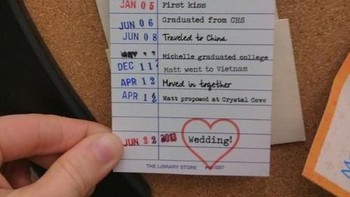 JAN 05 First kiss
JUN 06 Graduated from CHS
JUN 08 Traveled to China
Michelle graduated college
DEC 11 Matt went to Vietnam
APR 12 Moved in together
APR 1 Matt proposed at Crystal Cove
JUN 22 2013 Wedding!
THE LIBRARY STORE